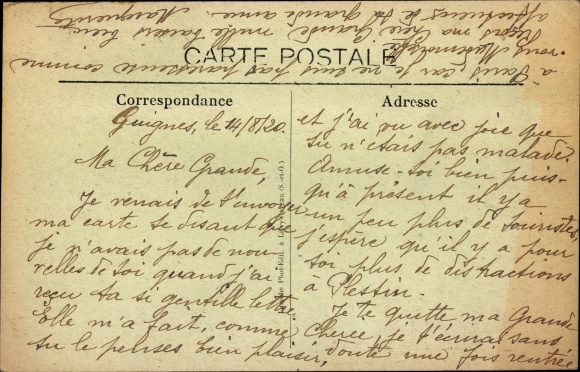 CARTE POSTALE
Correspondance
Adresse
Guignes, le 14/8/20.
Ma Chère Grande,
Je venais de t'envoyer
ma carte se disant que
je n'avais pas de nou
velles de toi quand j'ai
reçu ta si gentille lettre.
Elle m'a fait, comme
tu le penses bien plaisir,
et j'ai vu avec joie que
tu n'étais pas malade.
Amuse-toi bien puis-
qu'à présent il y a
un peu plus de touristes,
j'espère qu'il y a pour
toi plus de distractions
à Plestin.
Je te quitte ma Grande
Cherie je t'écrirai sans
doute une fois rentrée
à Paris car je ne suis pas paresseuse comme
vous Mademoiselle
Reçois ma chère Grande mille baisers bien
affectueux de ta grande amie.
Marguerite